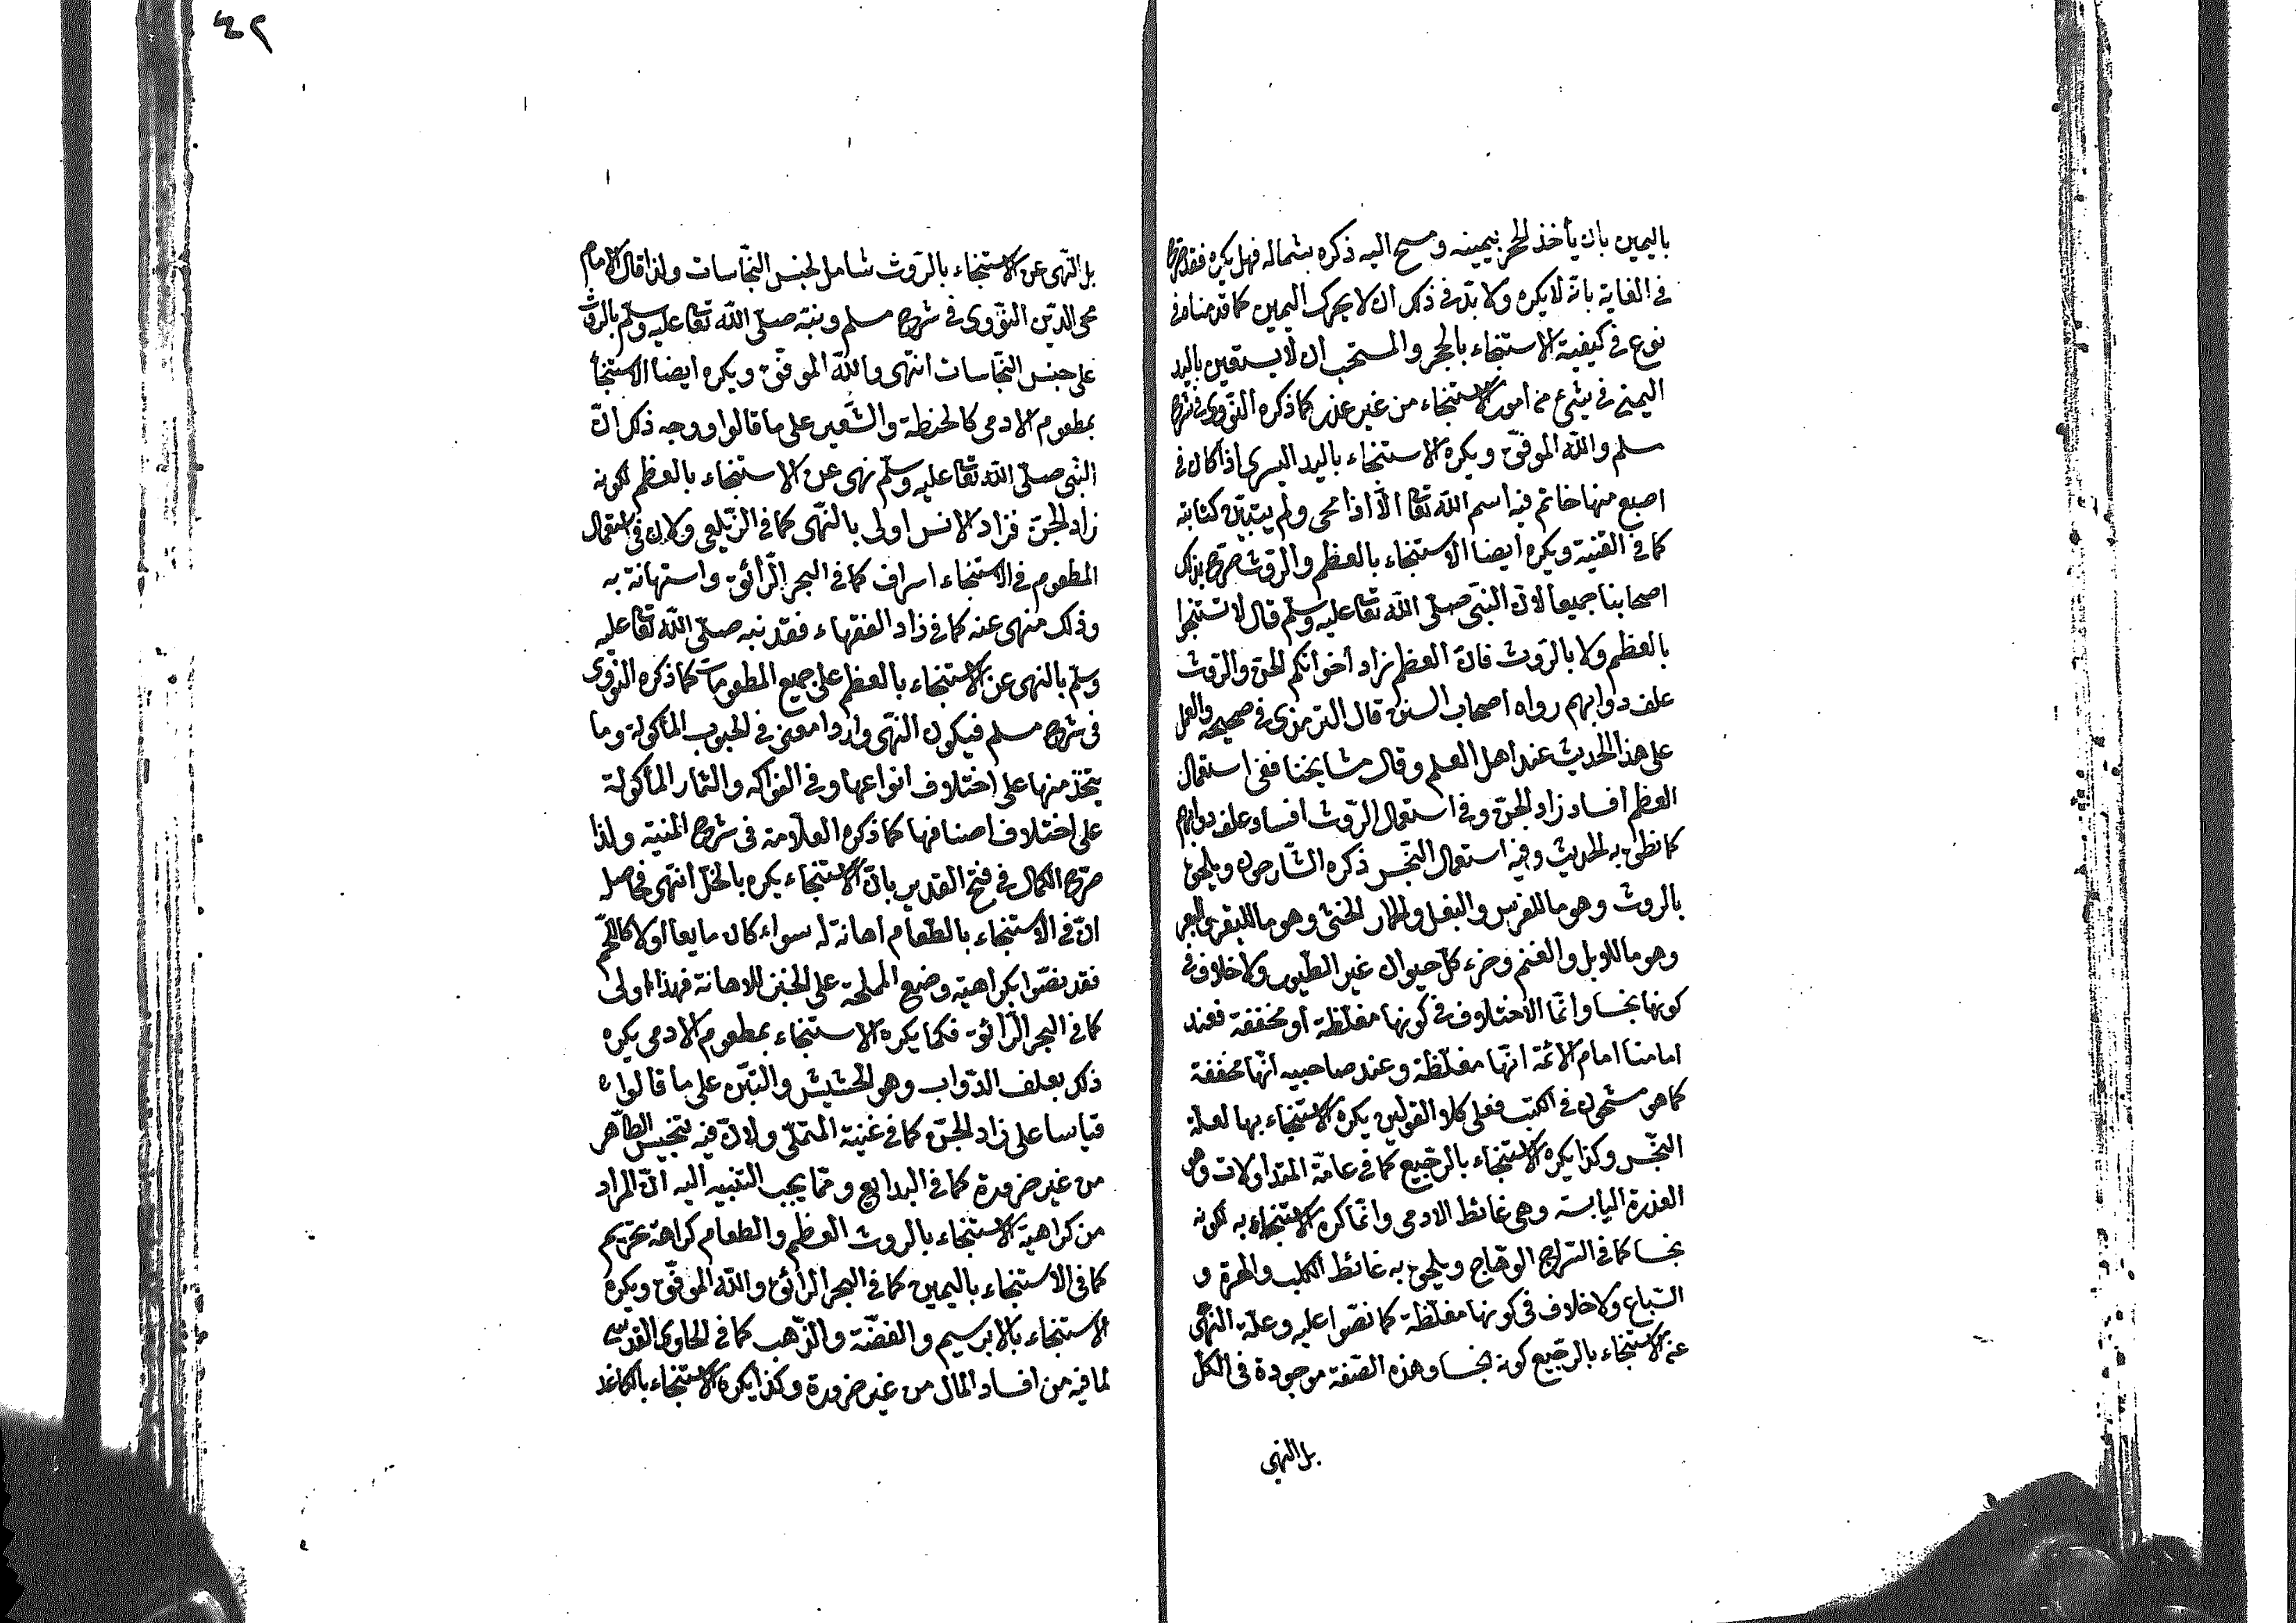 باليمين بان يأخذ الحجر بيمينه ومسح اليه ذكره بشماله فهل يكره فقد صرح
في الغاية بانه لا يكره ولا بد في ذلك ان لا يحرك اليمين كما قدمناه في
نوع في كيفية الاستنجاء بالحجر والمستحب ان لا يستعين باليد
اليمنى في شئ من امور الاستنجاء من غير عذر كما ذكره النّووى فى شرح
مسلم والله الموفق ويكره الاستنجاء باليد اليسرى اذا كان في
اصبع منها خاتم فيه اسم الله تعا الّا اذا محى ولم يتبيّن كتابته
كما في القنية ويكره أيضا الاستنجاء بالعظم والرّوث صرّح بذلك
اصحابنا جميعا لانّ النبّى صلّى الله تعا عليه وسلّم قال لا تستنجوا
بالعظم ولا بالرّوث فانّ العظم زاد اخوانكم الجنّ والرّوث
علف دوابهم رواه اصحاب السنن قال الترمزى فى صحيحه والعمل
على هذا الحديث عند اهل العلم وقال مشايخنا ففى استعمال
العظم افساد زاد الجنّ وفى استعمال الرّوث افساد علف دوابهم
كما نطق به الحديث وفيه استعمال النّجس ذكره الشّارحون ويلحق
بالروث وهو ما للفرس والبغل والحمار الخثى وهو ما للبقر والبعر
وهو ما للابل والغنم وخرء كلّ حيوان غير الطّيور ولا خلاف فى
كونها نجسا وانّما الاختلاف فى كونها مغلّظة أو مخففة فعند
امامنا امام الائمّة انّها مغلّظة وعند صاحبيه انّها مخففة
كما هو مشحون فى الكتب فعلى كلا القولين يكره الاستنجاء بها لعلة
النّجس وكذا يكره الاستنجاء بالرجيع كما فى عامّة المتداولات وهو
العذرة اليابسة وهى غائط الادمى وانّما كره الاستنجاء به لكونه
نجسا كما فى السّراج الوهّاج ويلحق به غائط الكلب والهرة و
السّباع ولا خلاف فى كونها مغلّظة كما نصّوا عليه وعلّة النّهى
عن الاستنجاء بالرّجيع كونه نجسا وهذه الصّفة موجودة فى الكلّ
بل النهى
٤٢
بل النّهى عن الاستنجاء بالرّوث شامل لجنس النّجاسات ولذا قال الامام
محى الدّين النّووى فى شرح مسلم ونبّه صلّى الله تعا عليه وسلّم بالروث
على جنس النّجاسات انتهى والله الموفّق ويكره ايضا الاستنجأ
بمطعوم الادمى كالحنطة والشّعير على ما قالوا ووجه ذلك انّ
النّبى صلّى الله تعا عليه وسلّم نهى عن الاستنجاء بالعظم لكونه
زاد الجنّ فزاد الانس اولى بالنّهى كما فى الزّيلعى ولانّ فى استعمال
المطعوم فى الاستنجاء اسراف كما فى البحر الرّائق واستهانة به
وذلك منهى عنه كما فى زاد الفقهاء فقد نبه صلّى الله تعا عليه
وسلّم بالنهى عن الاستنجاء بالعظم على جميع المطعومات كما ذكره النّووى
فى شرح مسلم فيكون النّهى واردا معنى فى الحبوب المأكولة وما
يتّخذ منها على اختلاف انواعها وفى الفواكه والثمار المأكولة
على اختلاف اصنافها كما ذكره العلّامة فى شرح المنية ولذا
صرّح الكمال فى فتح القدير بانّ الاستنجاء يكره بالخلّ انتهى فحاصله
انّ فى الاستنجاء بالطّعام اهانة له سواء كان مايعا اولا كاللّحم
فقد نصّوا بكراهية وضع المملحة على الخبز للاهانة فهذا اولى
كما فى البحر الرّائق فكما يكره الاستنجاء بمطعوم الادمى يكره
ذلك بعلف الدّواب وهو الحشيش والتبّن على ما قالوا ه
قياسا على زاد الجنّ كما فى غنية المتملّى ولانّ فيه تنجيس الطّاهر
من غير ضرورة كما فى البدايع وممّا يجب التّنبيه اليه انّ المراد
من كراهية الاستنجاء بالروث العظم والطعام كراهة تحريم
كما فى الاستنجاء باليمين كما فى البحر الرائق والله الموفّق ويكره
الاستنجاء بالابرسيم والفضّة والذّهب كما فى الحاوى القدسى
لما فيه من افساد المال من غير ضرورة وكذا يكره الاستنجاء بالكاغد